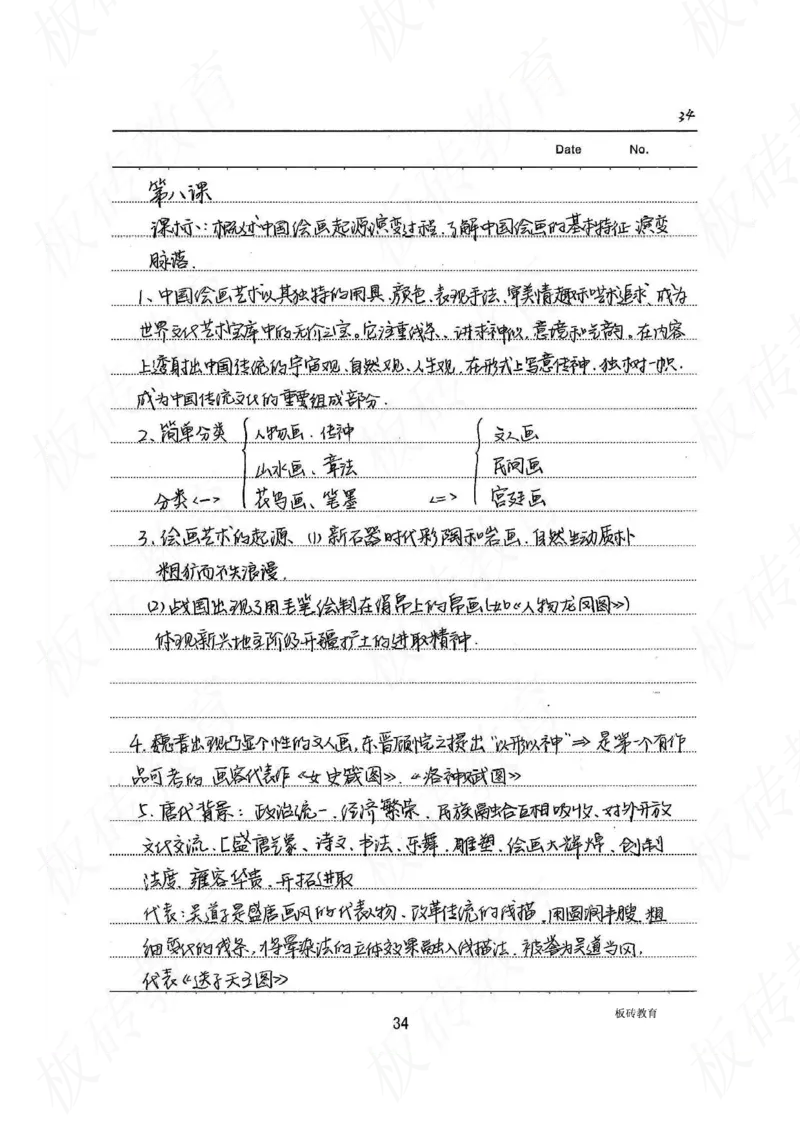 34
Date No.
第八课
课标:概述中国绘画起源演变过程,了解中国绘画的基本特征、演变
脉落.
1、中国绘画艺术以其独特的用具、颜色、表现手法、审美情趣和艺术追求,成为
世界文化艺术宝库中的无价之宝。它注重线条、讲求神似,意境和气韵。在内容
上透射出中国传统的宇宙观、自然观、人生观,在形式上写意传神、独树一帜.
成为中国传统文化的重要组成部分.
2、简单分类 人物画、传神 文人画
山水画、章法 民间画
分类<-> 花鸟画、笔墨 <=> 宫廷画
3、绘画艺术的起源、(1) 新石器时代彩陶和岩画.自然生动质朴
粗犷而不失浪漫.
(2)战国出现了用毛笔绘制在绢帛上的帛画(如《人物龙凤图》)
体现新兴地主阶级开疆扩土的进取精神.
4.魏晋出现凸显个性的文人画,东晋顾恺之提出“以形以神”=> 是第一个有作
品可考的 画家代表作《女史箴图》.《洛神赋图》
5.唐代背景: 政治统一.经济繁荣.民族融合互相吸收、对外开放
文化交流.[盛唐气象、诗文、书法、乐舞、雕塑、绘画大辉煌、创制
法度.雍容华贵.开拓进取
代表:吴道子是盛唐画风的代表人物、改革传统的线描,用圆润丰腴,粗
细变化的线条,将晕染法的立体效果融入线描法.被誉为吴道当风,
代表《送子天王图》
34
板砖教育